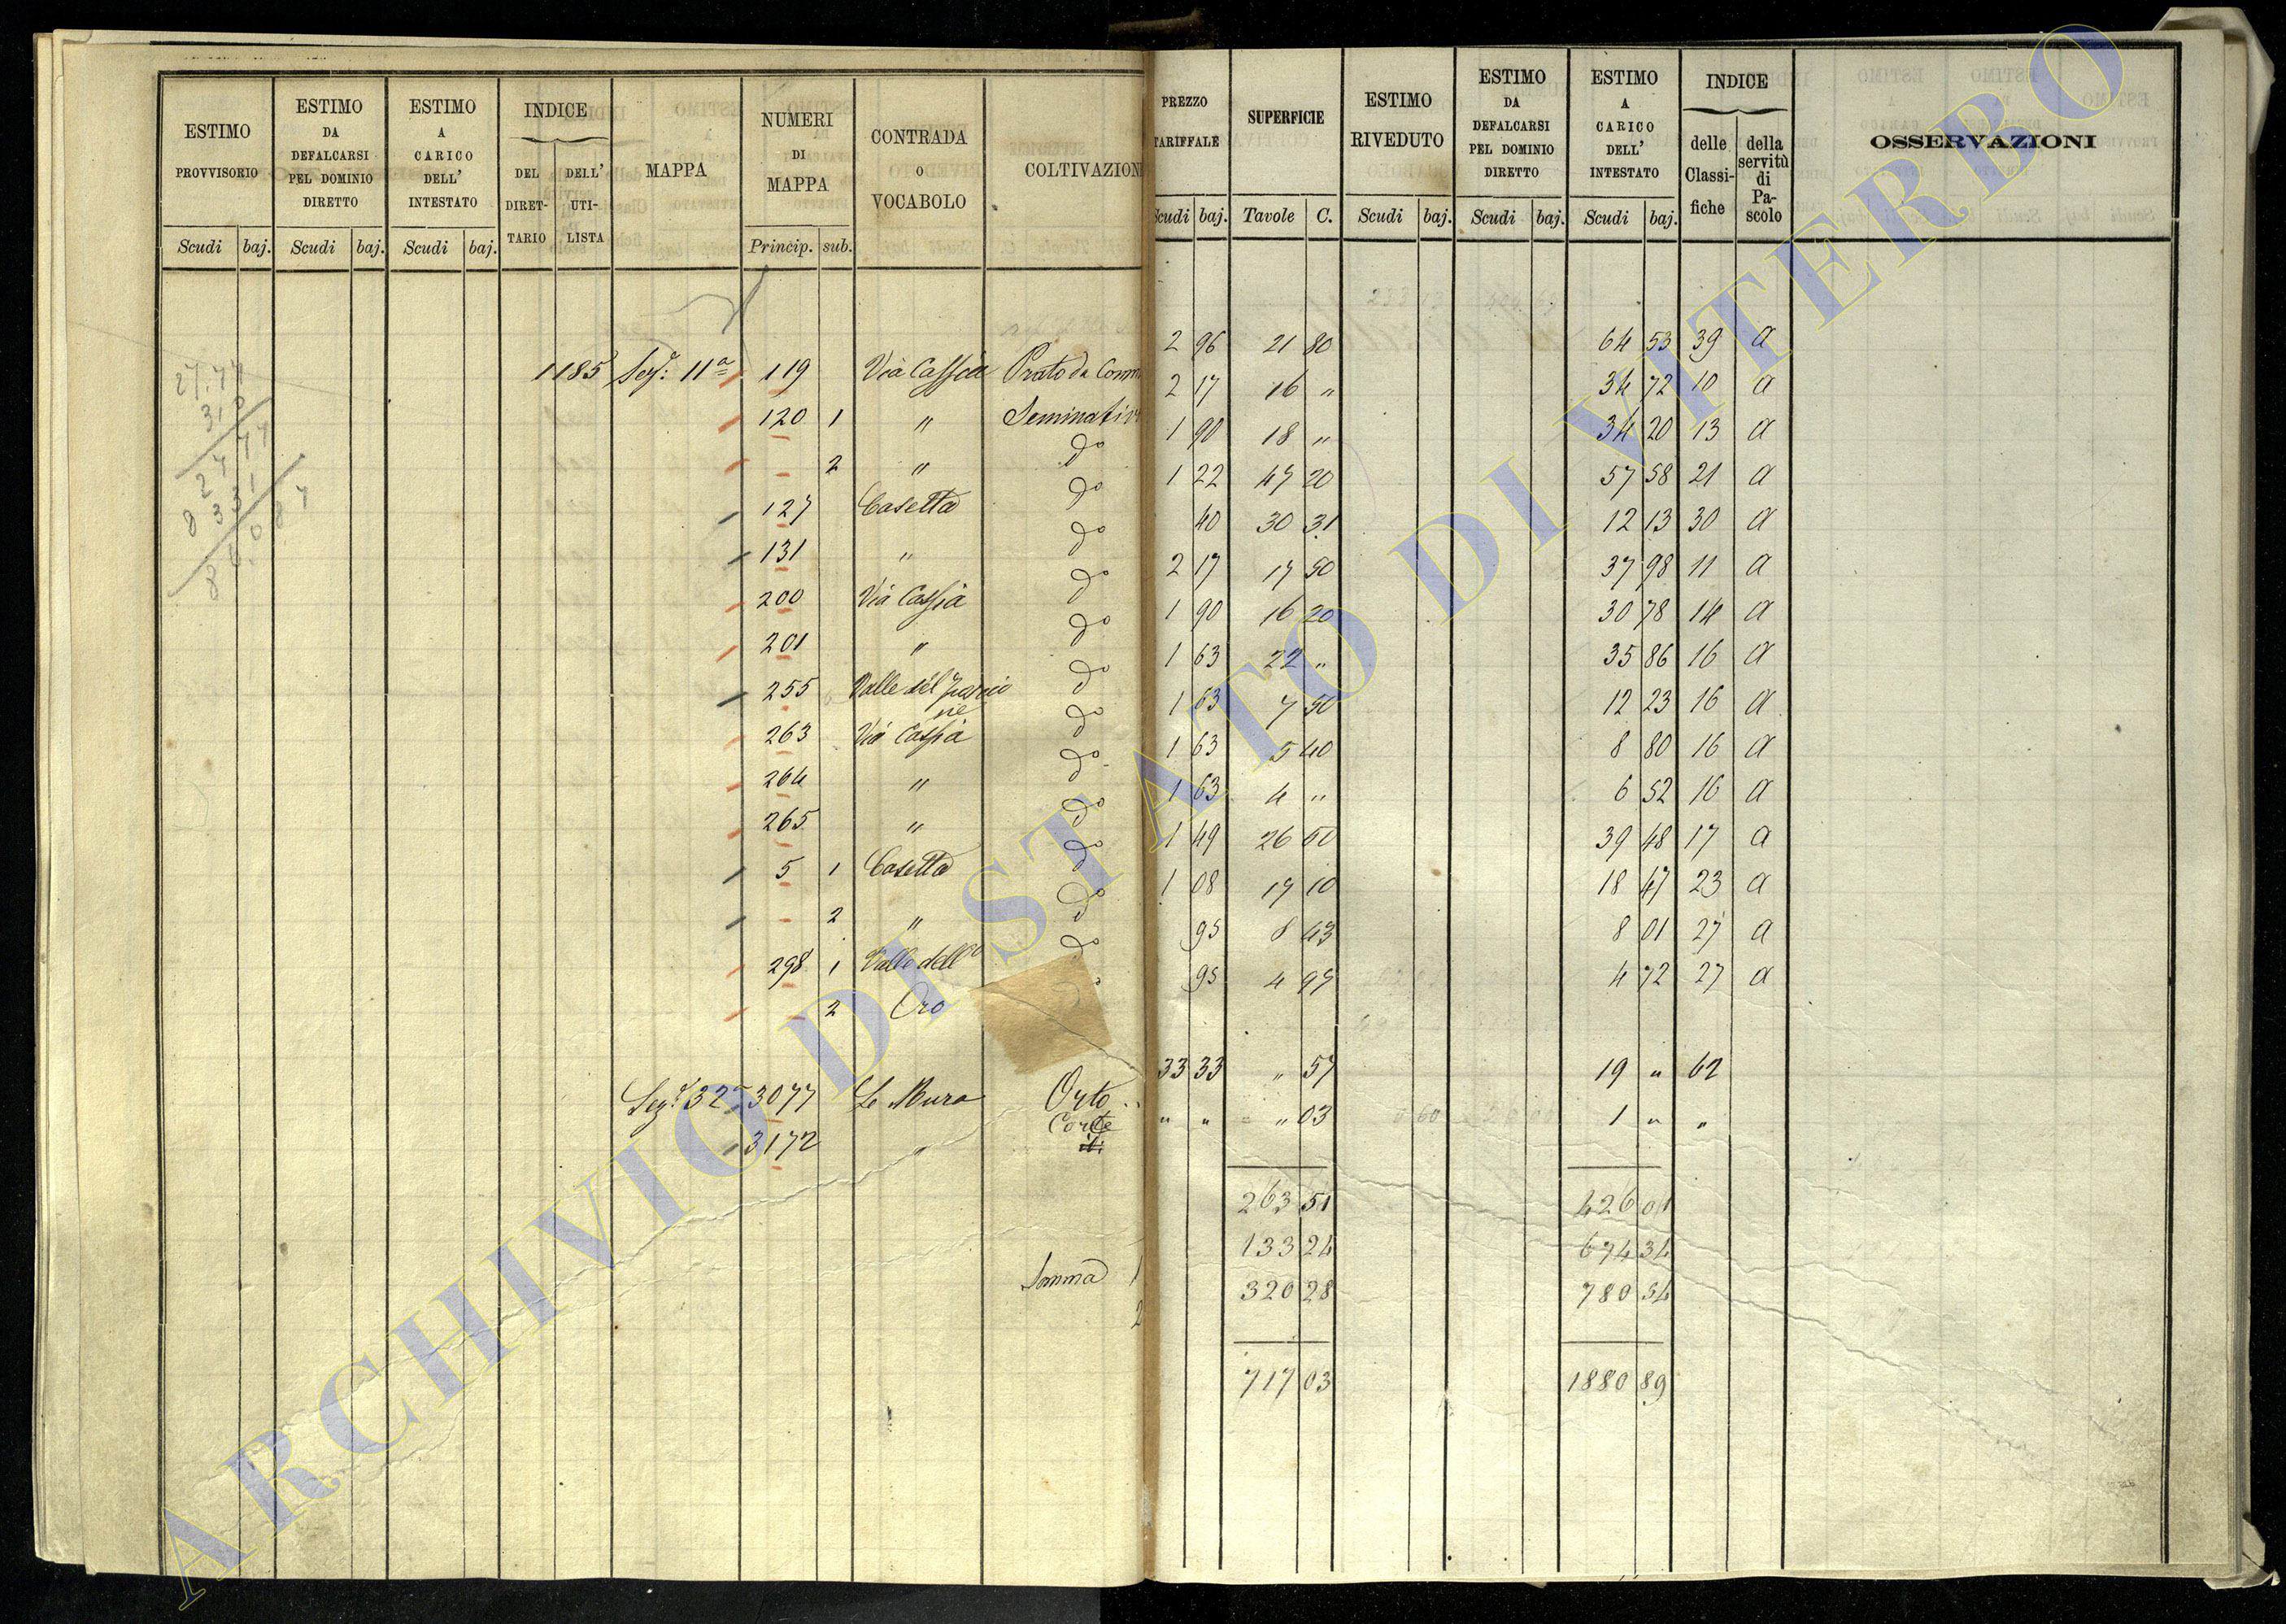 ESTIMO PROVVISORIO Scudi baj.
ESTIMO DA DEFALCARSI PEL DOMINIO DIRETTO Scudi baj.
ESTIMO A CARICO DELL' INTESTATO Scudi baj.
INDICE DEL DIRETTARIO DELL' UTILISTA
MAPPA
NUMERI DI MAPPA Princip. sub.
CONTRADA O VOCABOLO
COLTIVAZION
PREZZO TARIFFALE Scudi baj.
SUPERFICIE Tavole C.
ESTIMO RIVEDUTO Scudi baj.
ESTIMO DA DEFALCARSI PEL DOMINIO DIRETTO Scudi baj.
ESTIMO A CARICO DELL' INTESTATO Scudi baj.
INDICE delle Classifiche della servitù di Pascolo
OSSERVAZIONI
1185 Sez: 11ª 119 Via Cassia Prato da Comm 2 96 21 80 64 53 39 a
120 1 " Seminativ 2 17 16 " 34 72 10 a
- 2 " do 1 90 18 " 34 20 13 a
127 Casetta do 1 22 47 20 57 58 21 a
131 " do 40 30 31 12 13 30 a
200 Via Cassia do 2 17 17 50 37 98 11 a
201 " do 1 90 16 20 30 78 14 a
255 Valle del do 1 63 22 " 35 86 16 a
263 Via Cassia do 1 63 7 50 12 23 16 a
264 " do 1 63 5 40 8 80 16 a
265 " do 1 63 4 " 6 52 16 a
5 1 Casetta do 1 49 26 50 39 48 17 a
- 2 " do 1 08 17 10 18 47 23 a
298 1 Valle dell' do 95 8 43 8 01 27 a
- 2 Oro 95 4 97 4 72 27 a
Sez. 32 3077 Le Mura Orto 33 33 " 57 19 " 62
3172 " Corte " " " 03 1 " "
263 51 426 01
Somma 1 133 24 674 34
2 320 28 780 54
717 03 1880 89
ARCHIVIO DI STATO DI VITERBO